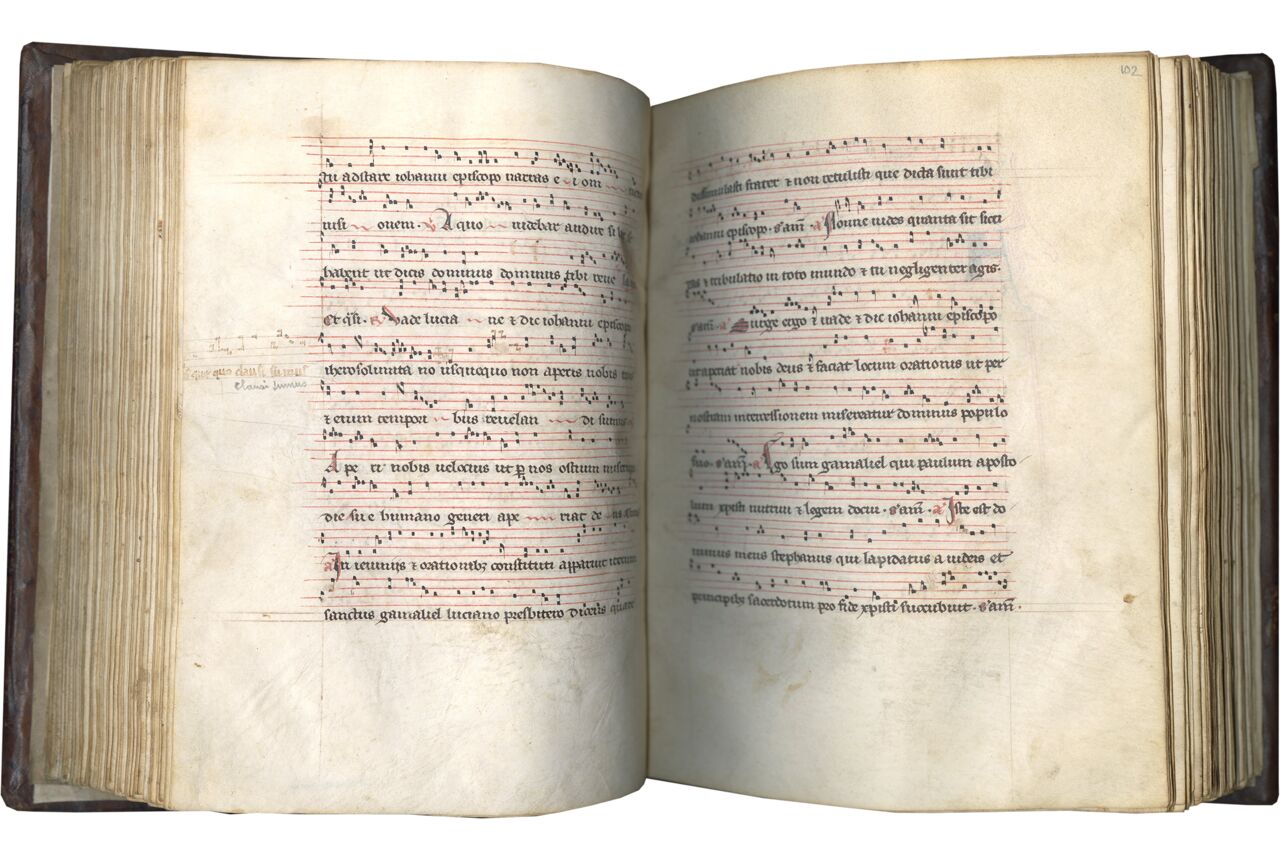 stu adstare iohanni episcopo narras e i om
uisi onem. V A quo uidebar audire si
habent ut dicis dominus dominus tibi reue
Et qsi. R Vade lucia ne & dic iohanni episcopo
sque quo clausi sumus
clausi sumus
iherosolimita no usquequo non aperis nobis
& enim tempori bus reuelan di sumus
A pe ri nobis uelocius ut p nos ostium
die sue humano generi ape riat de
a In ieiunijs & orationibz constituti apparuit iterum
sanctus gamaliel luciano presbitero dicens quare
102
dissimulasti frater & non retulisti que dicta sunt tibi
iohanni episcopo. s'am. a Nonne uides quanta sit sicci
tas & tribulatio in toto mundo & tu negligenter agis.
s'am. a Surge ergo & uade & dic iohanni episcopo
ut aperiat nobis deus & faciat locum orationis ut per
nostram intercessionem misereatur dominus populo
suo. s'am. a Ego sum gamaliel qui paulum aposto
lum xpisti nutriui & legem docui. s'am. a Iste est do
minus meus stephanus qui lapidatus a iudeis et
principibz sacerdotum pro fide xpisti succubuit. s'am.